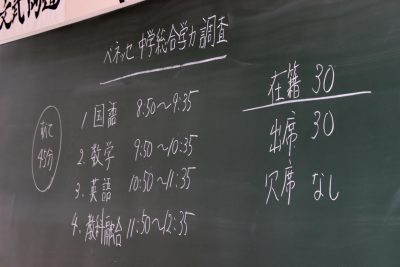 ベネッセ 中学総合学力調査
すべて
45分
1 国語 8:50〜9:35
2. 数学 9:50〜10:35
3. 英語 10:50〜11:35
4. 教科融合 11:50〜12:35
在籍 30
出席 30
欠席 なし